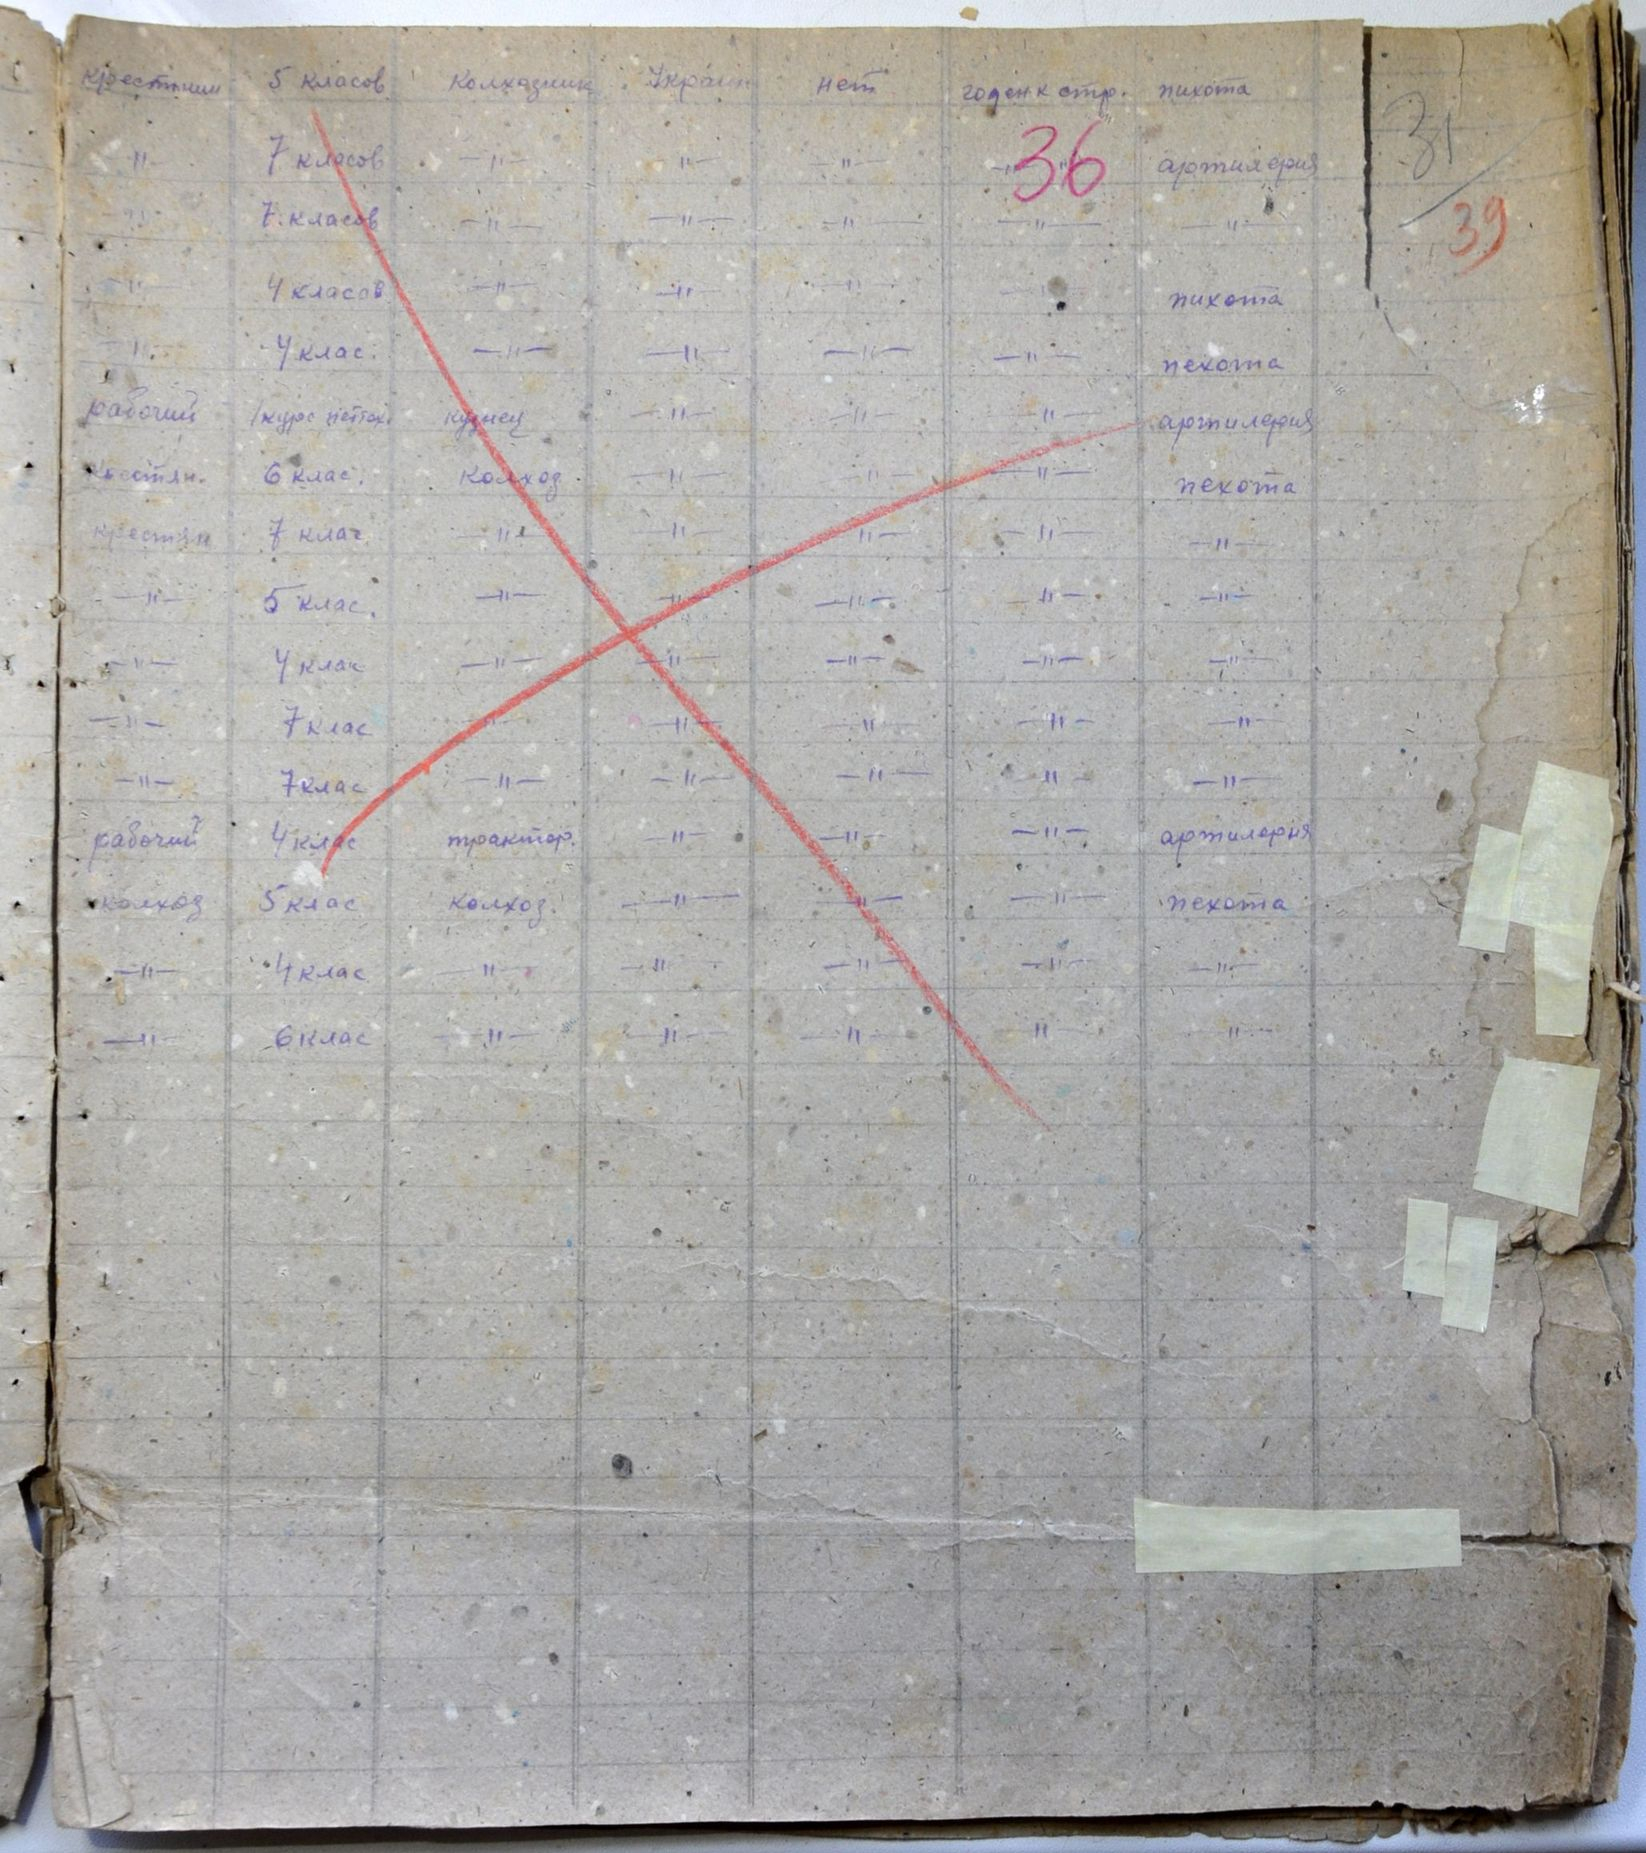 крестянин 5 класов колхозник Украин нет годен к стр. пихота
—"— 7 класов —"— —"— —"— —"— артилерия
36
31
—"— 7 класов —"— —"— —"— —"— —"—
39
—"— 4 класов —"— —"— —"— —"— пихота
—"— 4 клас. —"— —"— —"— —"— пехота
рабочий 1 курс кузнец —"— —"— —"— артилерия
6 клас. колхоз —"— —"— —"— пехота
крестян 7 клас —"— —"— —"— —"— —"—
—"— 5 клас. —"— —"— —"— —"— —"—
—"— 4 клас —"— —"— —"— —"— —"—
—"— 7 клас —"— —"— —"— —"— —"—
—"— 7 клас —"— —"— —"— " —"—
рабочий 4 клас трактор. —"— —"— —"— артилерия
колхоз 5 клас колхоз. —"— —"— —"— пехота
—"— 4 клас —"— —"— —"— —"— —"—
—"— 6 клас —"— —"— —"— " —"—